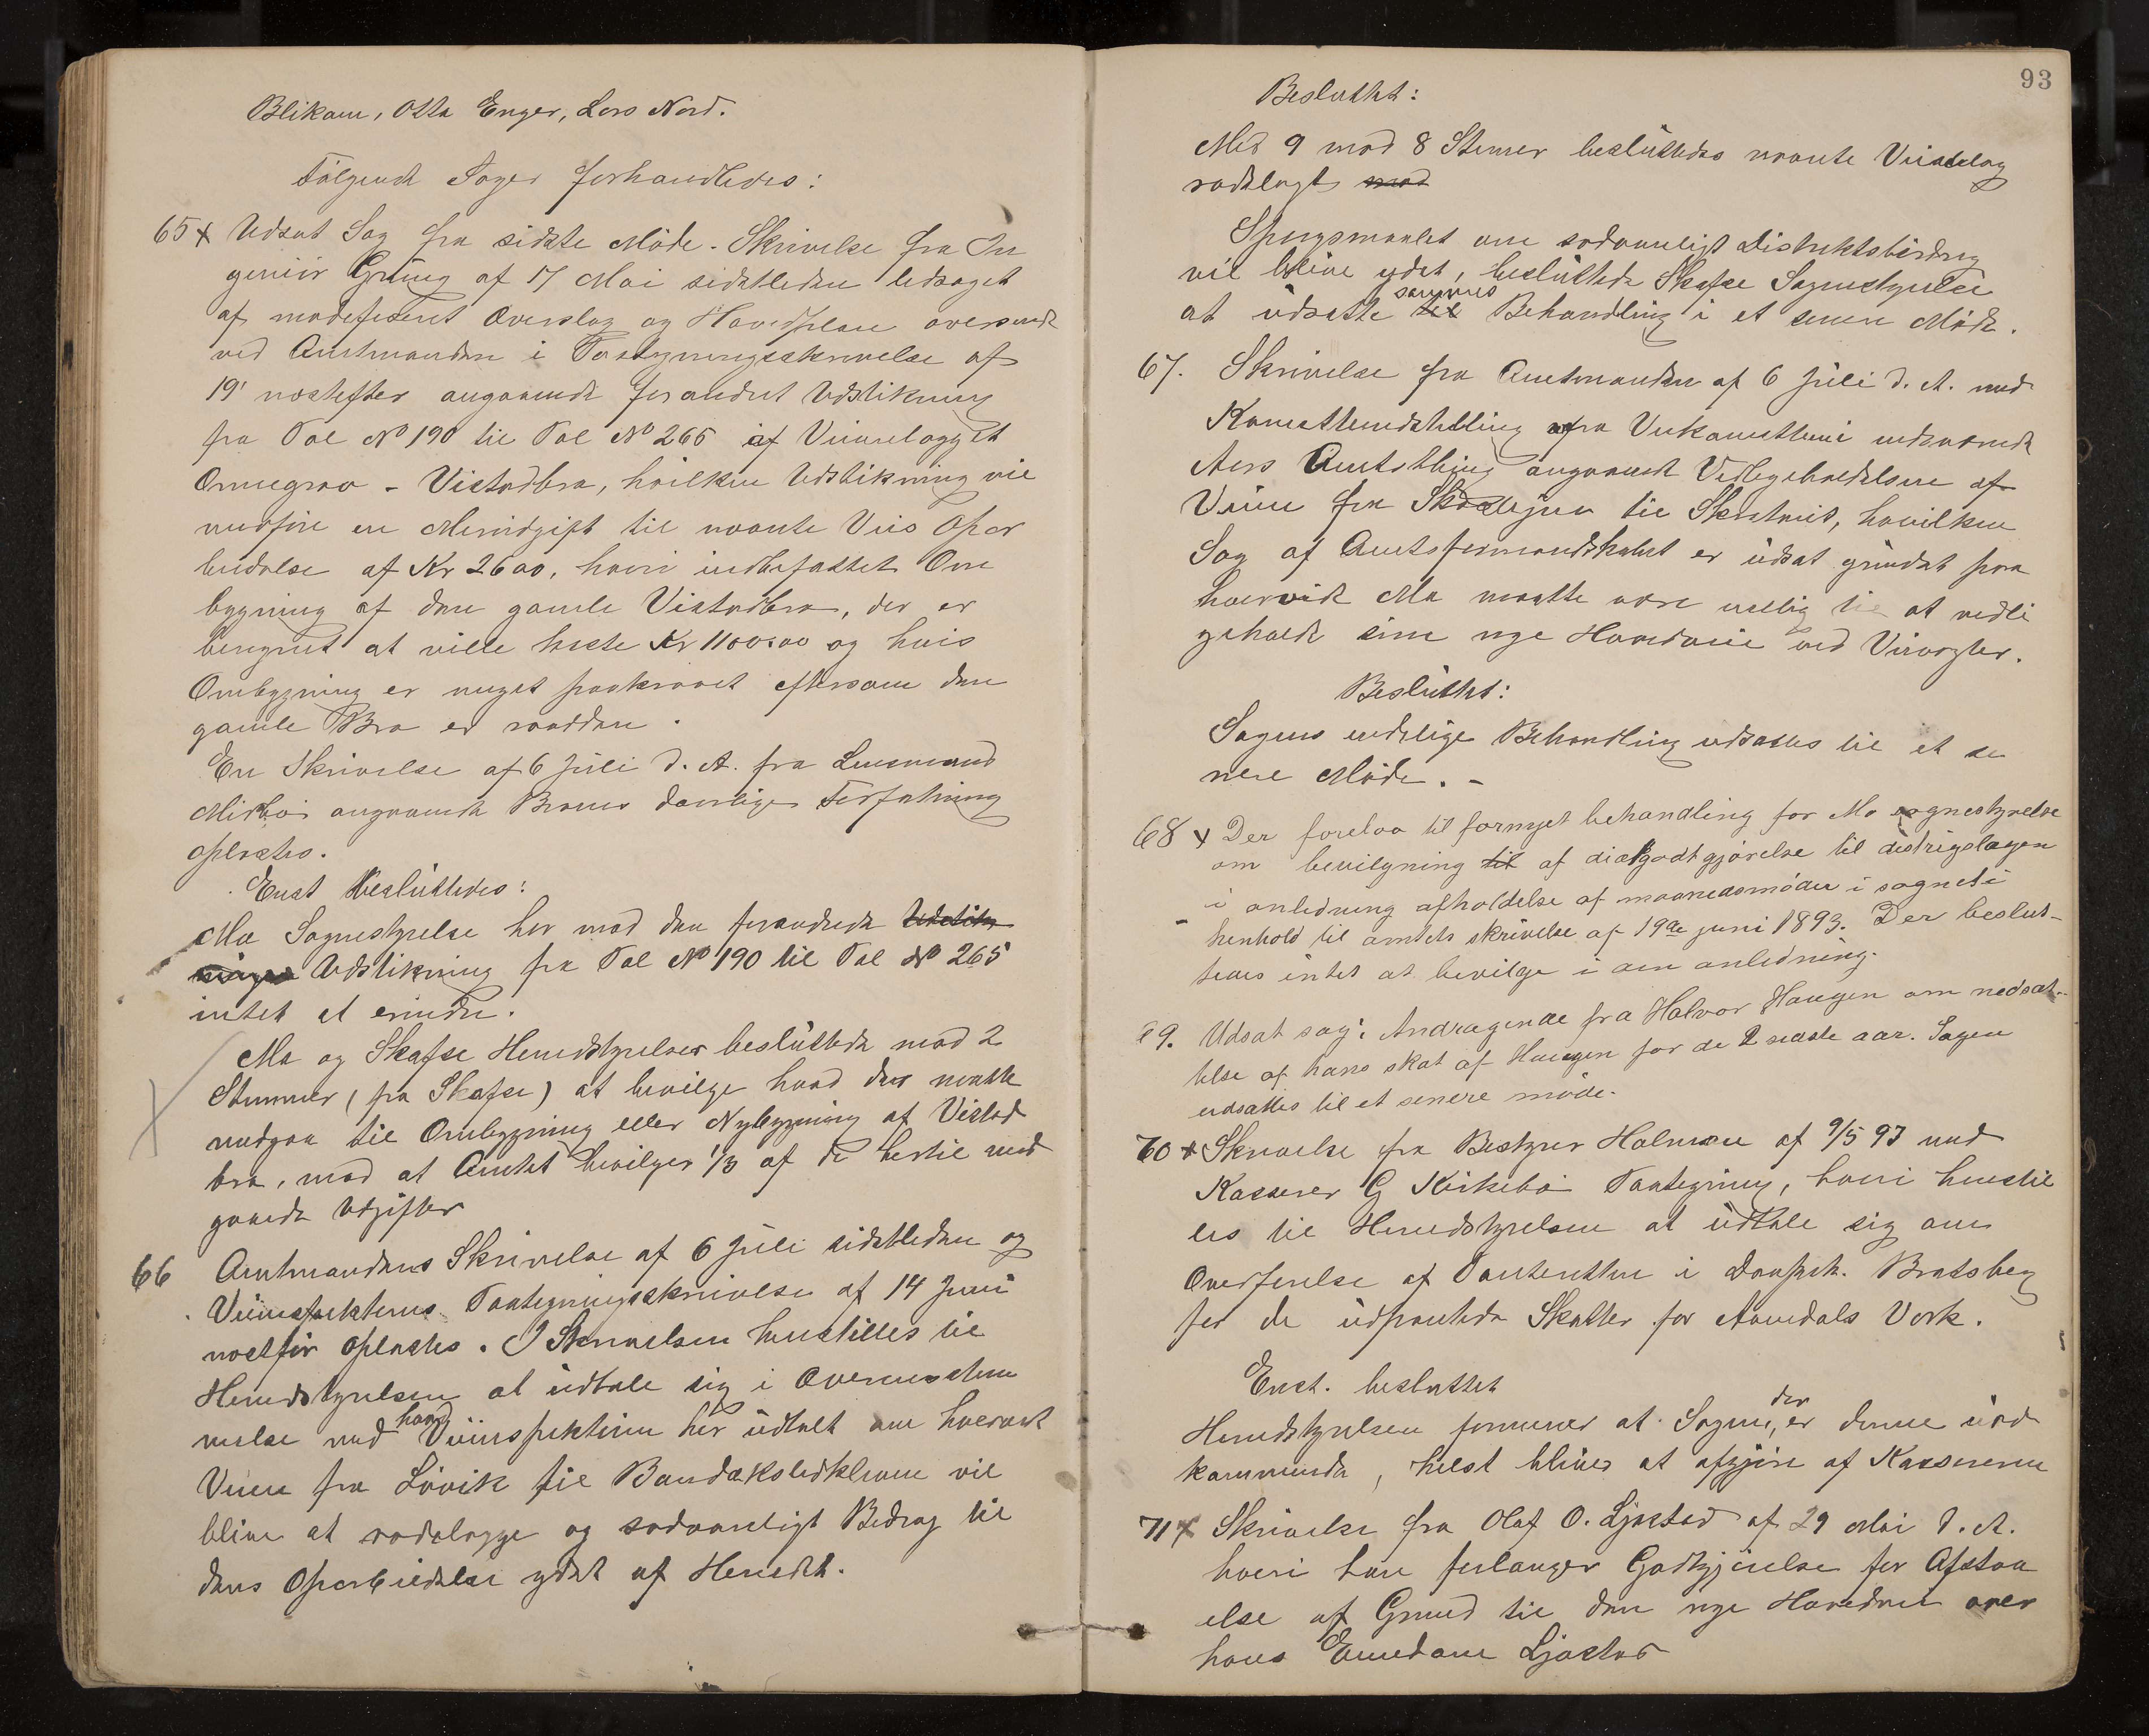 Blikom, Otto Enger, Lars Nord.
Følgende Sager forhandledes:
65 x Udsat Sag fra sidste Møde. Skrivelse fra In
geniør Grüng af 17 Mai sidstleden ledsaget
af modificeret Overslag og Hovedplan oversendt
ved Amtmanden i Paategningsskrivelse af
19' næstefter angaaende forandret Udstikning
fra Pæl No 190 til Pæl No 265 af Veianlægget
Ormegrav - Vistadbro, hvilken Udstikning vil
medføre en Merudgift til nævnte Veis Opar
beidelse af Kr 2600, heri indbefattet Om
bygning af den gamle Vistadbro, der er
beregnet at ville koste Kr 1100.00 og hvis
Ombygning er meget paakrævet eftersom den
gamle Bro er raadden.
En Skrivelse af 6 Juli d. A. fra Lensmand
Midbø angaaende Broens daarlige Forfatning
oplæstes.
Enst besluttedes:
Mo Sognestyrelse har mod den forandrede Udstik
ningen Udstikning fra Pæl No 190 til Pæl No 265
intet at erindre.
Mo og Skafse Herredstyrelser besluttede mod 2
Stemmer (fra Skafse) at bevilge hvad der maatte
medgaa til Ombygning eller Nybygning af Vistad
bro, mod at Amtet bevilger 1/3 af de hertil med
gaaede Udgifter
66 Amtmandens Skrivelse af 6 Juli sidstleden og
Veiinspektørens Paategningsskrivelse af 14 Juni
næstfør oplæstes. I Skrivelsen henstilles til
Herredstyrelsen at udtale sig i Overensstem
melse med hvad Veiinspektøren har udtalt om hvorvidt
Veien fra Lövik til Bandaksli vil
blive at rodelægge og sædvanligt Bidrag til
dens Oparbeidelse ydet af Herredet.
93
Besluttet:
Med 9 mod 8 Stemer besluttedes nævnte Veianlæg
rodelagt mod
Spørgsmaalet om sædvanligt Distriktsbidrag
vil blive ydet, besluttede Skafse Sognestyrelse
at udsætte til sammes Behandling i et senere Møde.
67. Skrivelse fra Amtmanden af 6 Juli d. A. med
Komiteindstilling fra Veikomiteen indeværende
Aars Amtsthing angaaende Vedligeholdelsen af
Veien fra til Skredtveit, hvilken
Sag af Amtsformandskabet er udsat grundet paa
hvorvidt Mo maatte være villig til at vedli
geholde sine nye Hovedveie ved Veivogter.
Besluttet:
Sagens endelige Behandling udsættes til et se
nere Møde. -
68 x Der forelaa til fornyet behandling for Mo sognestyrelse
om bevilgning til af diætgodtgjørelse til distrigslægen
i anledning afholdelse af maanedsmøder i sognet i
henhold til amtets skrivelse af 19de juni 1893. Der beslut-
tedes intet at bevilge i den anledning.
69. Udsat sag: Andragende fra Halvor Haugen om nedsæt-
telse af hans skat af Haugen for de 2 sidste aar. Sagen
udsattes til et senere møde.
70 x Skrivelse fra Bestyrer Holmen af 9/5 93 med
Kasserer G Kirkebø Paategning, hvori henstil
les til Herredstyrelsen at udtale sig om
Overførelse af Panteretten i Bratsberg
for de udpantede Skatter for Aamdals Verk.
Enst. besluttet
Herredstyrelsen formener at Sagen, der er denne ved
kommende, helst bliver at afgjøre af Kassereren
71 x Skrivelse fra Olaf O. Ljøstad af 29 Mai d. A.
hvori han forlanger Godtgjørelse for Afstaa
else af Grund til den nye Hovedvei over
hans Eiendom Ljøstad